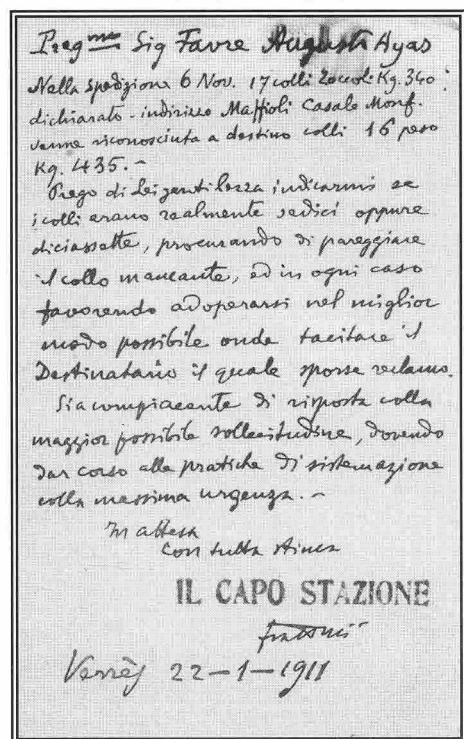 Preg.mo Sig Favre Augusto Ayas
Nella spedizione 6 Nov. 17 colli Zoccoli Kg. 340
dichiarato - indirizzo Maffioli Casale Monf.
venne riconosciuta a destino colli 16 peso
Kg. 435. -
Prego di Lei gentilezza indicarmi se
i colli erano realmente sedici oppure
diciassette, procurando di pareggiare
il collo mancante, ed in ogni caso
favorendo adoperarsi nel miglior
modo possibile onde tacitare il
Destinatario il quale sporse reclamo.
Sia compiacente di risposta colla
maggior possibile sollecitudine, dovendo
dar corso alle pratiche di sistemazione
colla massima urgenza. -
In attesa
Con tutta stima
IL CAPO STAZIONE
Verrès 22-1-1911